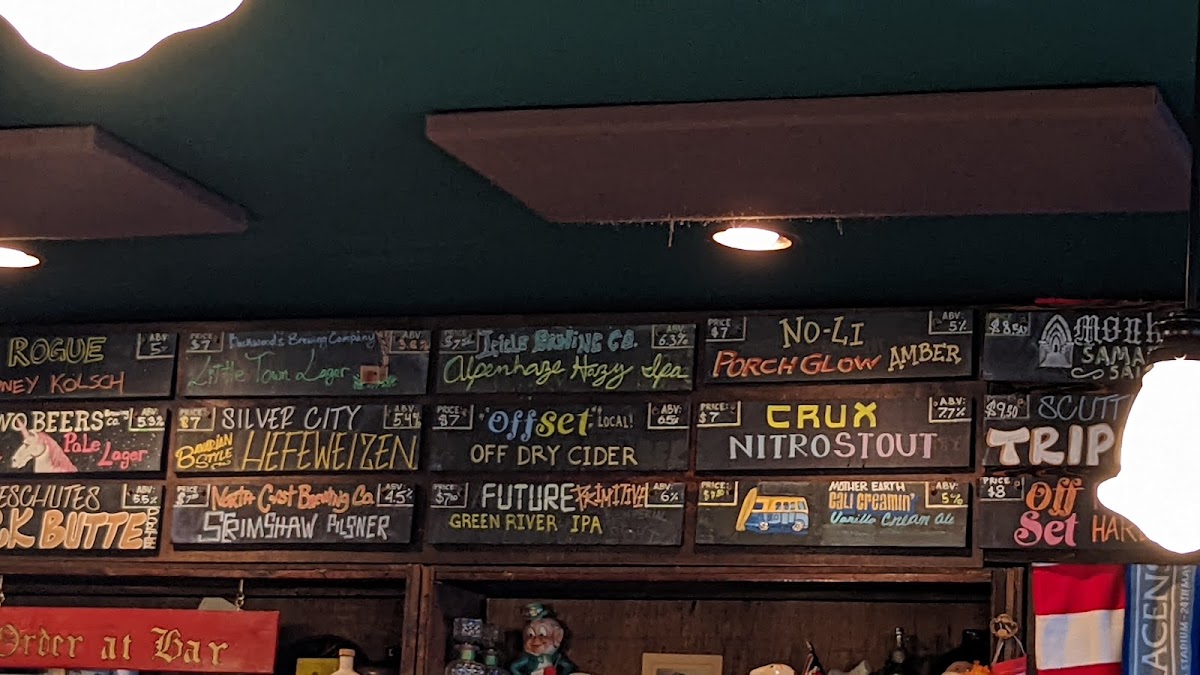 ROGUE
ABV: 5%
NEY KOLSCH
PRICE: $7
Brewing Company
ABV:
Little Town Lager
PRICE:
Icicle Brewing Co.
ABV: 6.3%
Alpenhaze Hazy Ipa
PRICE: $7
NO-LI
ABV: 5%
PORCH GLOW AMBER
$8.50
WO BEERS
ABV: 5.3%
Pale Lager
PRICE: $7
SILVER CITY
ABV: 5.4%
BAVARIAN STYLE
HEFEWEIZEN
PRICE: $7
"Offset"
LOCAL!
ABV:
OFF DRY CIDER
PRICE: $7
CRUX
ABV:
NITRO STOUT
PRICE: $9.50
SCUTT
TRIP
ESCHUTES
ABV: 5.5%
CK BUTTE
PRICE:
North Coast Brewing Co.
ABV: 4.5%
SCRIMSHAW PILSNER
PRICE:
FUTURE PRIMITIVE
ABV: 6%
GREEN RIVER IPA
PRICE:
MOTHER EARTH
ABV: 5%
Cali Creamin'
Vanilla Cream Ale
PRICE: $8
Off Set
HAR
Order at Bar